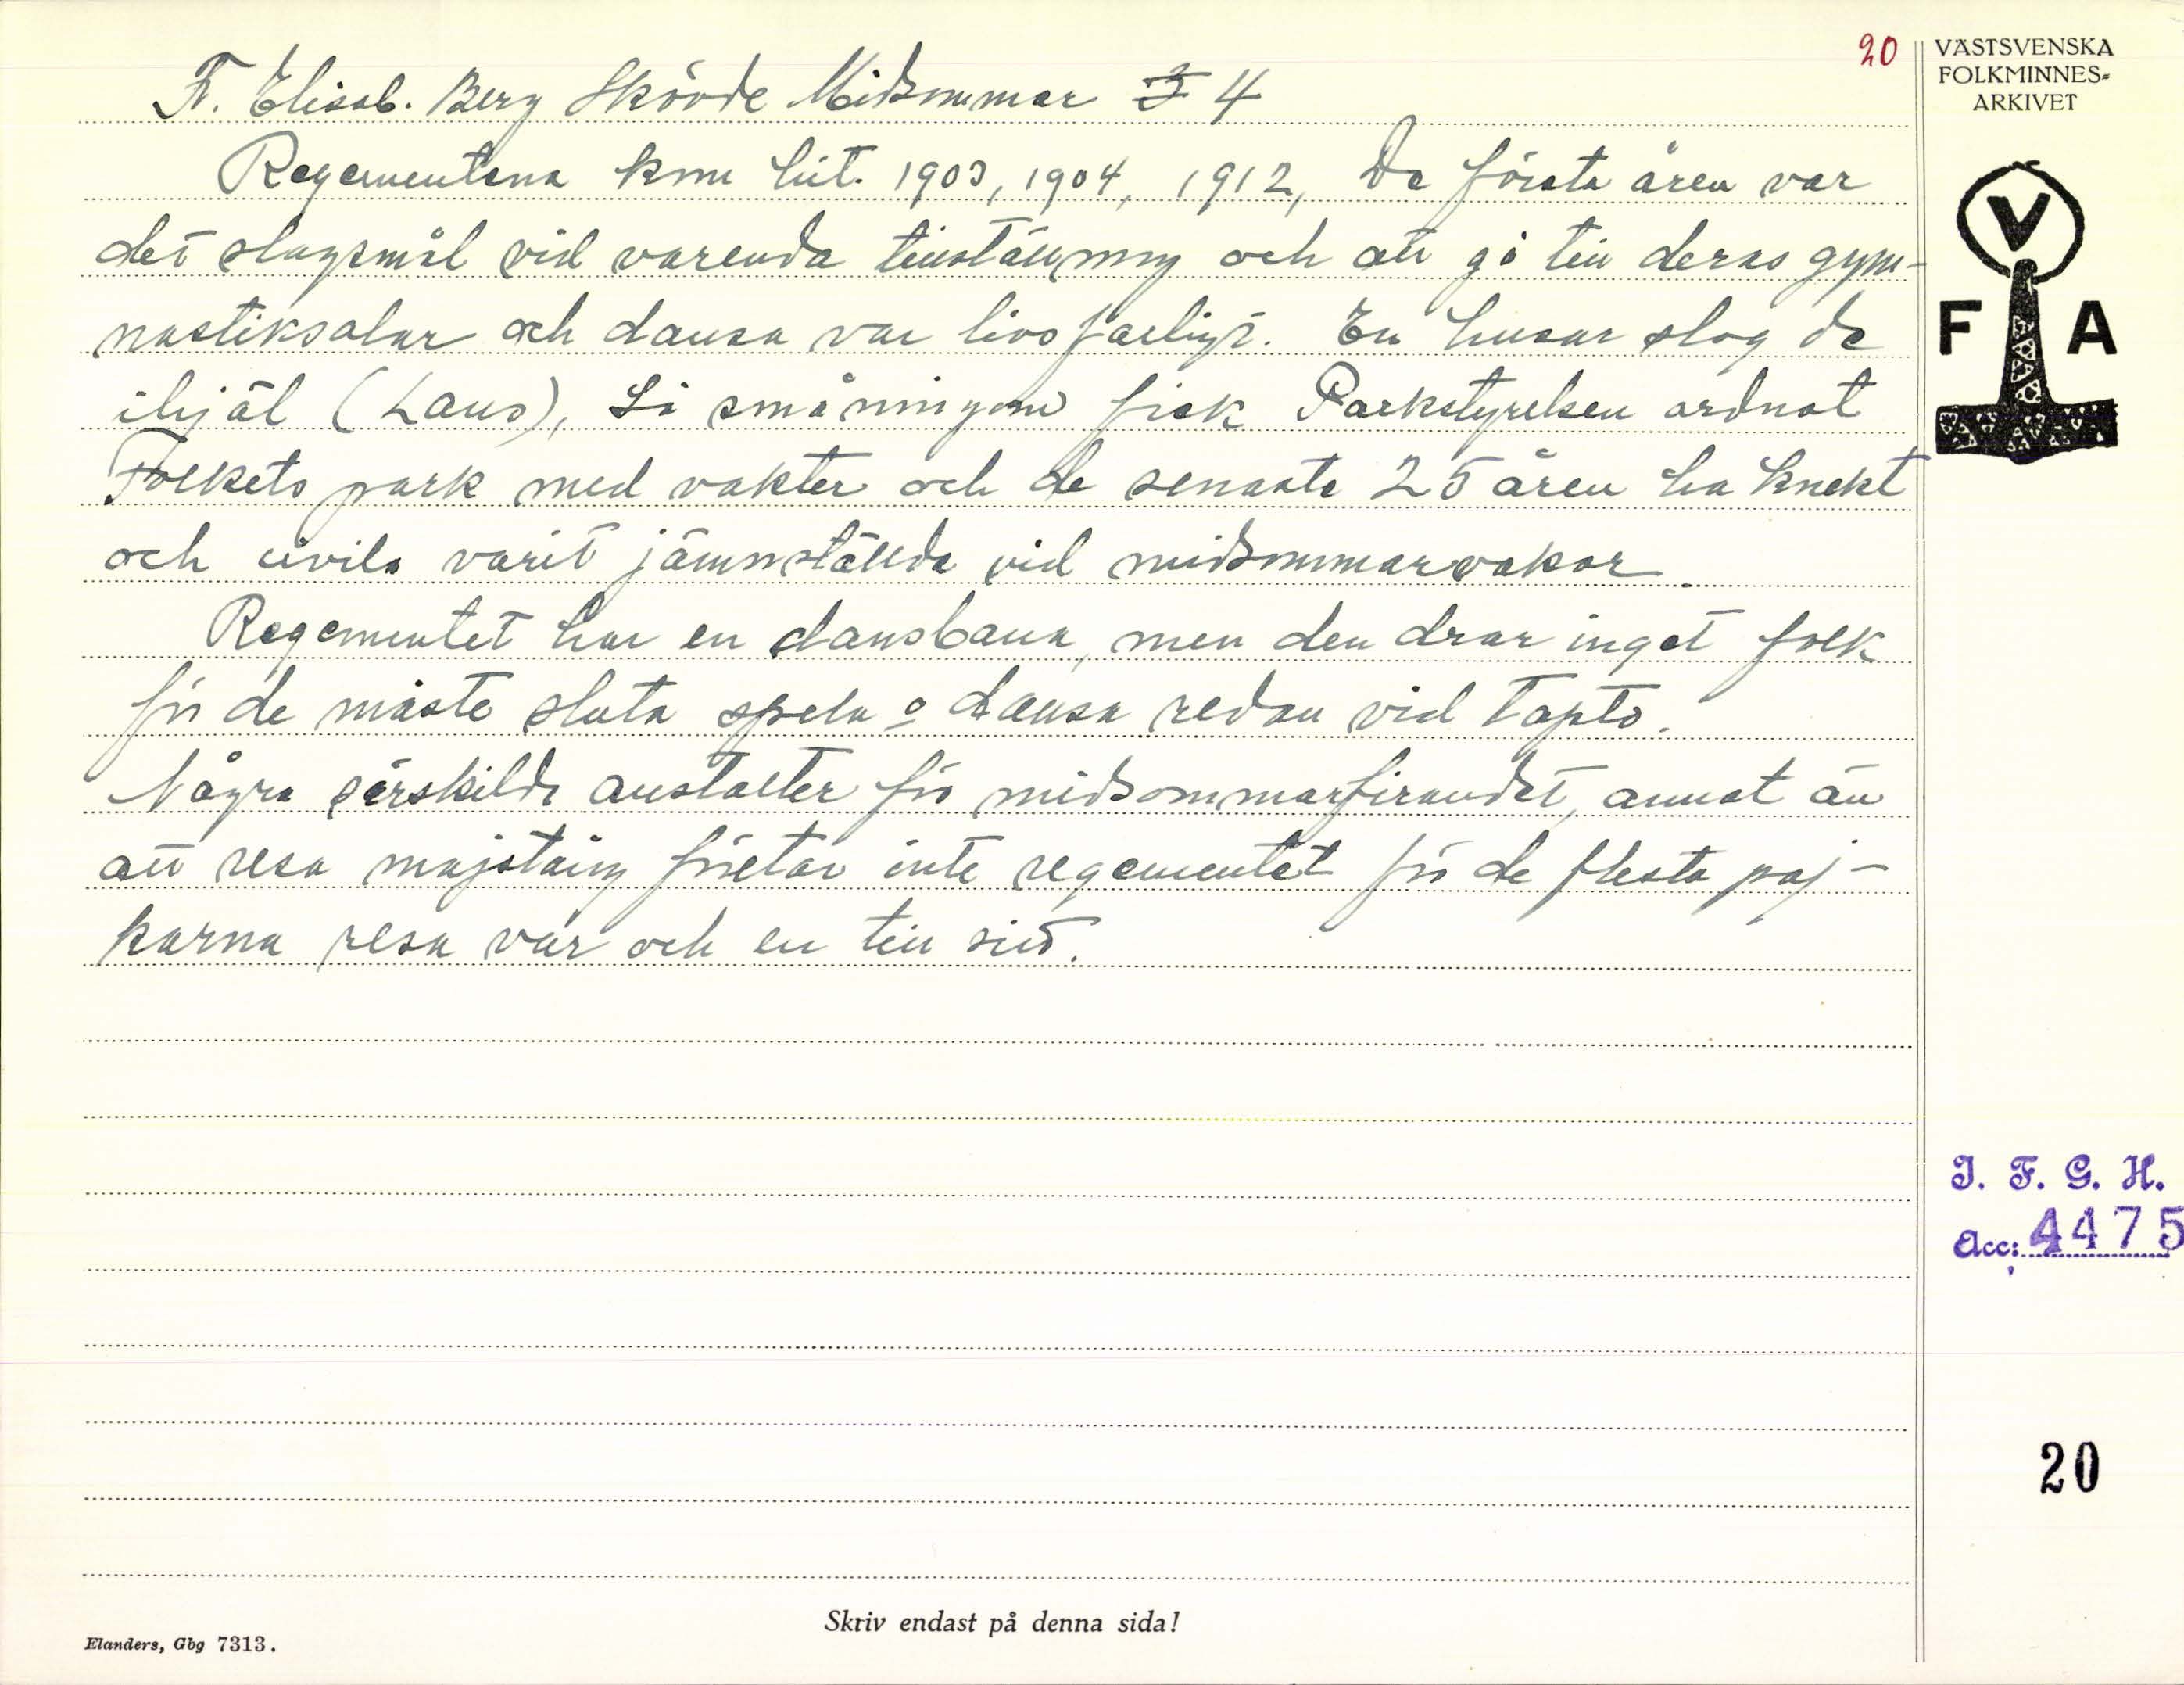 20
VÄSTSVENSKA
FOLKMINNES-
ARKIVET
F. Elisab. Berg Skövde Midsommar 3 4
Regementena kom hit. 1903, 1904, 1912, De första åren var
det slagsmål vid varenda tillställning och att gå till deras gym-
nastiksalar och dansa var livsfarligt. En husar slog de
ihjäl (Laus), Så småningom fick Parkstyrelsen ordnat
Folkets park med vakter och de senaste 25 åren ha knekt
och civila varit jämnställda vid midsommarvakor.
Regementet har en dansbana, men den drar inget folk
för de måste sluta spela o dansa redan vid Tapto.
Några särskilda anstalter för midsommarfirandet, annat än
att resa majstång företar inte regementet för de flesta poj-
karna resa var och en till sitt.
V
F A
I. F. G. H.
Acc: 4475
20
Skriv endast på denna sida!
Elanders, Gbg 7313.